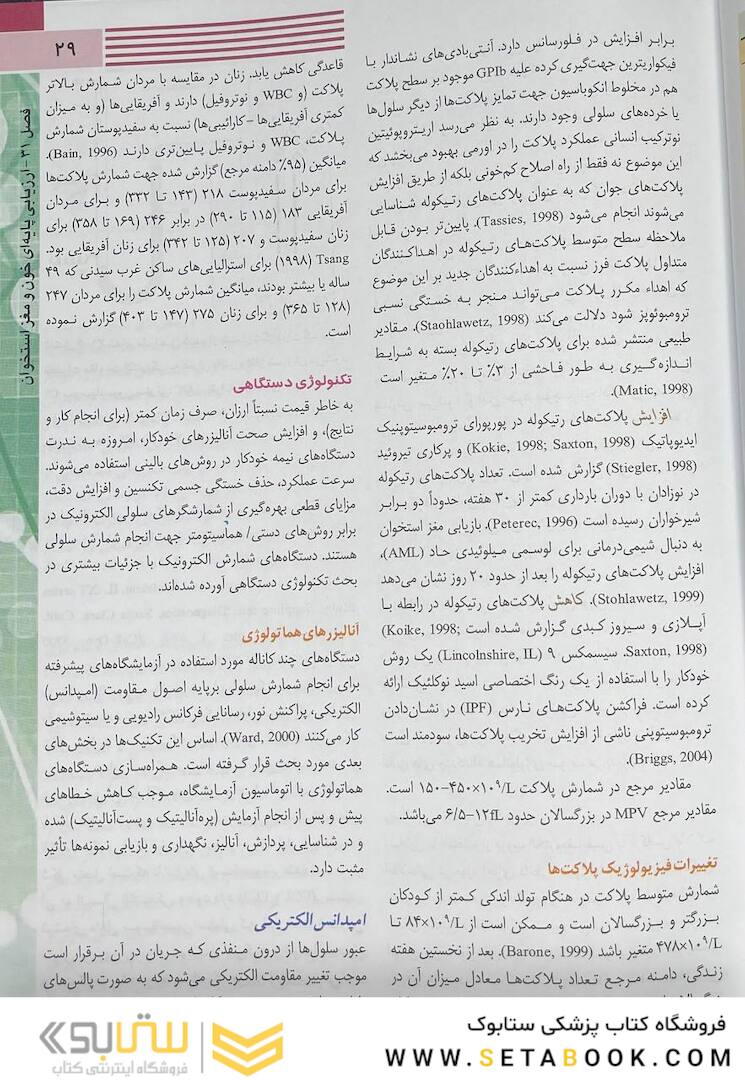 ۲۹
فصل ۳۱ - ارزیابی پایه‌ای خون و مغز استخوان
برابر افزایش در فلورسانس دارد. آنتی‌بادی‌های نشاندار با
فیکواریترین جهت‌گیری کرده علیه GPIb موجود بر سطح پلاکت
هم در مخلوط انکوباسیون جهت تمایز پلاکت‌ها از دیگر سلول‌ها
یا خرده‌های سلولی وجود دارند. به نظر می‌رسد اریتروپوئیتین
نوترکیب انسانی عملکرد پلاکت را در اورمی بهبود می‌بخشد که
این موضوع نه فقط از راه اصلاح کم‌خونی بلکه از طریق افزایش
پلاکت‌های جوان که به عنوان پلاکت‌های رتیکوله شناسایی
می‌شوند انجام می‌شود (Tassies, 1998). پایین‌تر بودن قابل
ملاحظه سطح متوسط پلاکت‌های رتیکوله در اهداکنندگان
متداول پلاکت فرز نسبت به اهداءکنندگان جدید بر این موضوع
که اهداء مکرر پلاکت می‌تواند منجر به خستگی نسبی
ترومبوئوپز شود دلالت می‌کند (Staohlawetz, 1998). مقادیر
طبیعی منتشر شده برای پلاکت‌های رتیکوله بسته به شرایط
اندازه‌گیری به طور فاحشی از ۳٪ تا ۲۰٪ متغیر است
(Matic, 1998).
افزایش پلاکت‌های رتیکوله در پورپورای ترومبوسیتوپنیک
ایدیوپاتیک (Kokie, 1998; Saxton, 1998) و پرکاری تیروئید
(Stiegler, 1998) گزارش شده است. تعداد پلاکت‌های رتیکوله
در نوزادان با دوران بارداری کمتر از ۳۰ هفته، حدوداً دو برابر
شیرخواران رسیده است (Peterec, 1996). بازیابی مغز استخوان
به دنبال شیمی‌درمانی برای لوسمی میلوئیدی حاد (AML)،
افزایش پلاکت‌های رتیکوله را بعد از حدود ۲۰ روز نشان می‌دهد
(Stohlawetz, 1999). کاهش پلاکت‌های رتیکوله در رابطه با
آپلازی و سیروز کبدی گزارش شده است (Koike, 1998;
Saxton, 1998). سیسمکس ۹ (Lincolnshire, IL) یک روش
خودکار را با استفاده از یک رنگ اختصاصی اسید نوکلئیک ارائه
کرده است. فراکشن پلاکت‌های نارس (IPF) در نشان‌دادن
ترومبوسیتوپنی ناشی از افزایش تخریب پلاکت‌ها، سودمند است
(Briggs, 2004).
مقادیر مرجع در شمارش پلاکت ۱۵۰-۴۵۰×۱۰⁹/L است.
مقادیر مرجع MPV در بزرگسالان حدود ۶/۵-۱۲fL می‌باشد.
تغییرات فیزیولوژیک پلاکت‌ها
شمارش متوسط پلاکت در هنگام تولد اندکی کمتر از کودکان
بزرگتر و بزرگسالان است و ممکن است از ۸۴×۱۰⁹/L تا
۴۷۸×۱۰⁹/L متغیر باشد (Barone, 1999). بعد از نخستین هفته
زندگی، دامنه مرجع تعداد پلاکت‌ها معادل میزان آن در
قاعدگی کاهش یابد. زنان در مقایسه با مردان شمارش بالاتر
پلاکت (و WBC و نوتروفیل) دارند و آفریقایی‌ها (و به میزان
کمتری آفریقایی‌ها - کارائیبی‌ها) نسبت به سفیدپوستان شمارش
پلاکت، WBC و نوتروفیل پایین‌تری دارند (Bain, 1996).
میانگین (۹۵٪ دامنه مرجع) گزارش شده جهت شمارش پلاکت‌ها
برای مردان سفیدپوست ۲۱۸ (۱۴۳ تا ۳۳۲) و برای مردان
آفریقایی ۱۸۳ (۱۱۵ تا ۲۹۰) در برابر ۲۴۶ (۱۶۹ تا ۳۵۸) برای
زنان سفیدپوست و ۲۰۷ (۱۲۵ تا ۳۴۲) برای زنان آفریقایی بود.
Tsang (۱۹۹۸) برای استرالیایی‌های ساکن غرب سیدنی که ۴۹
ساله یا بیشتر بودند، میانگین شمارش پلاکت را برای مردان ۲۴۷
(۱۲۸ تا ۳۶۵) و برای زنان ۲۷۵ (۱۴۷ تا ۴۰۳) گزارش نموده
است.
تکنولوژی دستگاهی
به خاطر قیمت نسبتاً ارزان، صرف زمان کمتر (برای انجام کار و
نتایج)، و افزایش صحت آنالیزرهای خودکار، امروزه به ندرت
دستگاه‌های نیمه خودکار در روش‌های بالینی استفاده می‌شوند.
سرعت عملکرد، حذف خستگی جسمی تکنسین و افزایش دقت،
مزایای قطعی بهره‌گیری از شمارشگرهای سلولی الکترونیک در
برابر روش‌های دستی/ هماسیتومتر جهت انجام شمارش سلولی
هستند. دستگاه‌های شمارش الکترونیک با جزئیات بیشتری در
بحث تکنولوژی دستگاهی آورده شده‌اند.
آنالیزرهای هماتولوژی
دستگاه‌های چند کاناله مورد استفاده در آزمایشگاه‌های پیشرفته
برای انجام شمارش سلولی برپایه اصول مقاومت (امپدانس)
الکتریکی، پراکنش نور، رسانایی فرکانس رادیویی و یا سیتوشیمی
کار می‌کنند (Ward, 2000). اساس این تکنیک‌ها در بخش‌های
بعدی مورد بحث قرار گرفته است. همراه‌سازی دستگاه‌های
هماتولوژی با اتوماسیون آزمایشگاه، موجب کاهش خطاهای
پیش و پس از انجام آزمایش (پره‌آنالیتیک و پست‌آنالیتیک) شده
و در شناسایی، پردازش، آنالیز، نگهداری و بازیابی نمونه‌ها تأثیر
مثبت دارد.
امپدانس الکتریکی
عبور سلول‌ها از درون منفذی که جریان در آن برقرار است
موجب تغییر مقاومت الکتریکی می‌شود که به صورت پالس‌های
فروشگاه کتاب پزشکی ستابوک
WWW.SETABOOK.COM
ستابوک
فروشگاه اینترنتی کتاب